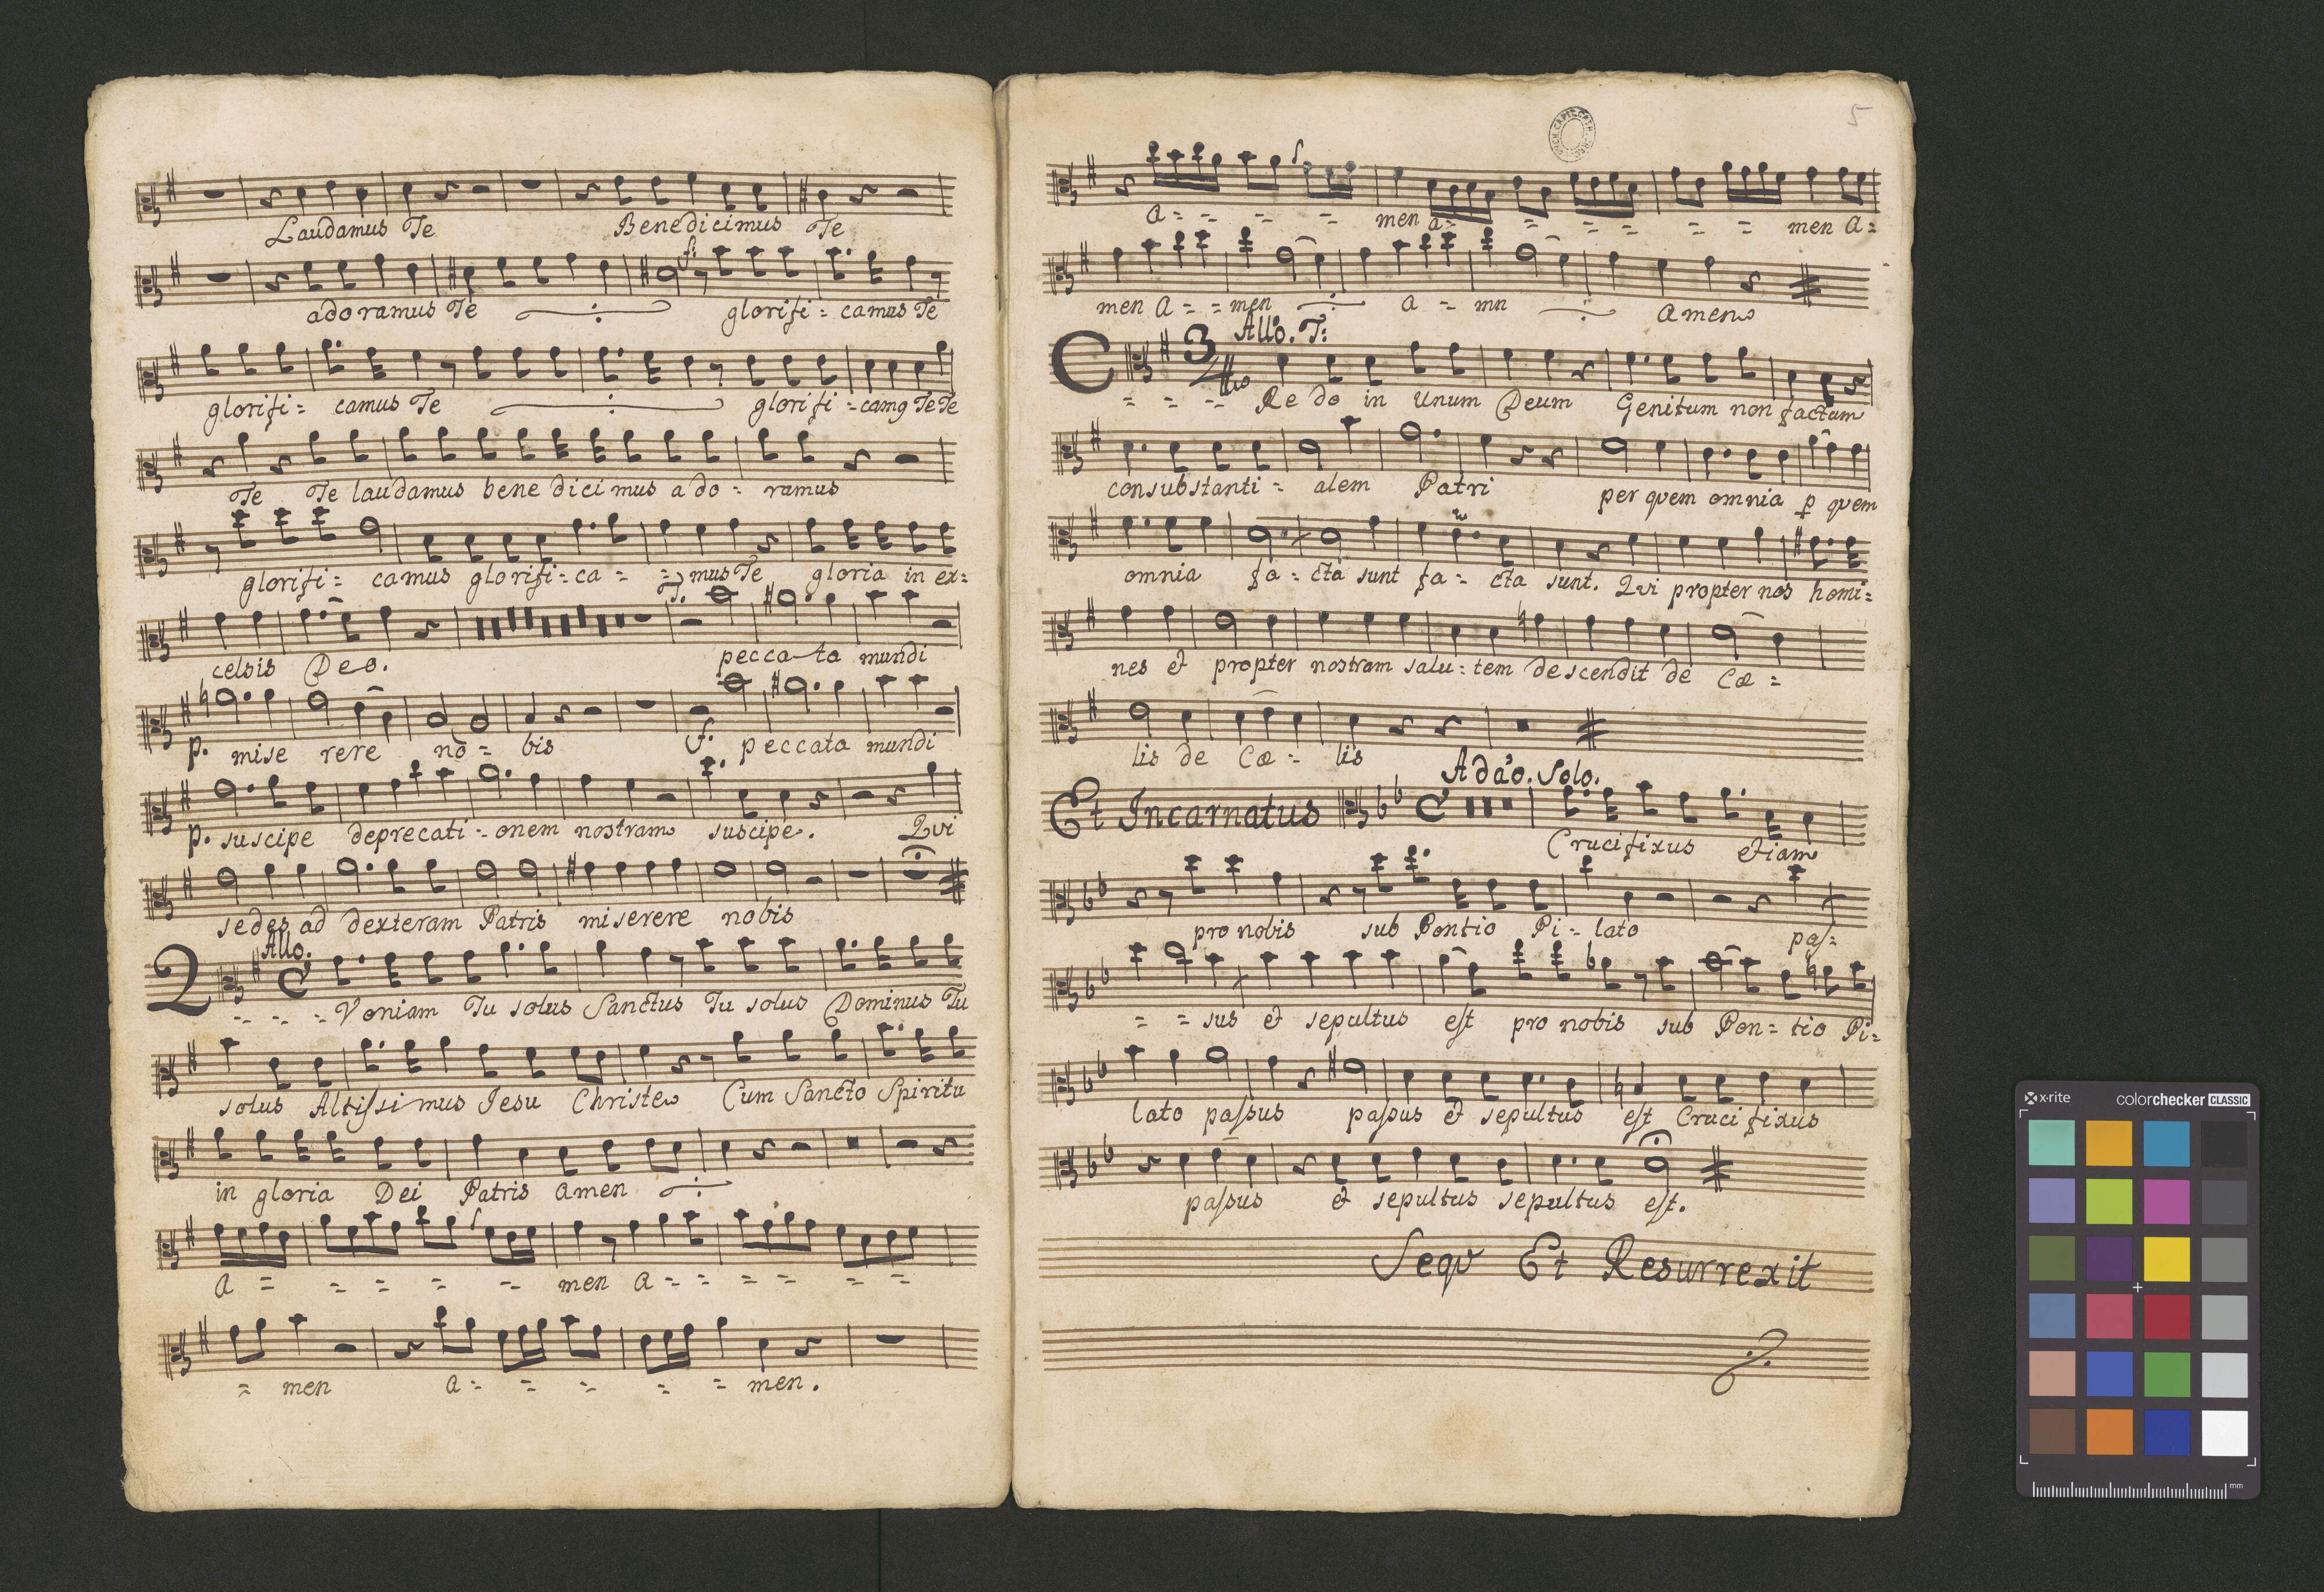 Laudamus Te Benedicimus Te
f:
adoramus Te glorifi = camus Te
glorifi = camus Te glorifi = camg Te Te
Te Te laudamus bene dici mus a do = ramus
glorifi = camus glorifi = ca = = mus Te gloria in ex =
T.
celsis Deo. pecca-ta mundi
p. mise rere no = bis f. peccata mundi
p. suscipe deprecati = onem nostram suscipe. Qvi
sedes ad dexteram Patris miserere nobis
Allo.
Q = = = Voniam Tu solus Sanctus Tu solus Dominus Tu
solus Altissi mus Jesu Christe Cum Sancto Spiritu
in gloria Dei Patris amen
a = = = = = men a = = = = = =
= men a = = = = = men.
5
a = = = = men a = = = = = = men a =
men a = = men a = mn amen
Allo. T:
C 3/4
= = = Re do in Unum Deum Genitum non factum
consubstanti = alem Patri per qvem omnia p qvem
omnia fa = cta sunt fa = cta sunt. Qvi propter nos homi =
nes et propter nostram salu = tem descendit de Cœ =
lis de Cœ = lis
Ada'o. Solo.
Et Incarnatus
Crucifixus etiam
pro nobis sub Pontio Pi = lato pas =
= = sus et sepultus est pro nobis sub Pon = tio Pi =
lato passus passus et sepultus est Cruci fixus
passus et sepultus sepultus est.
Seqv Et Resurrexit
x-rite colorchecker CLASSIC
mm